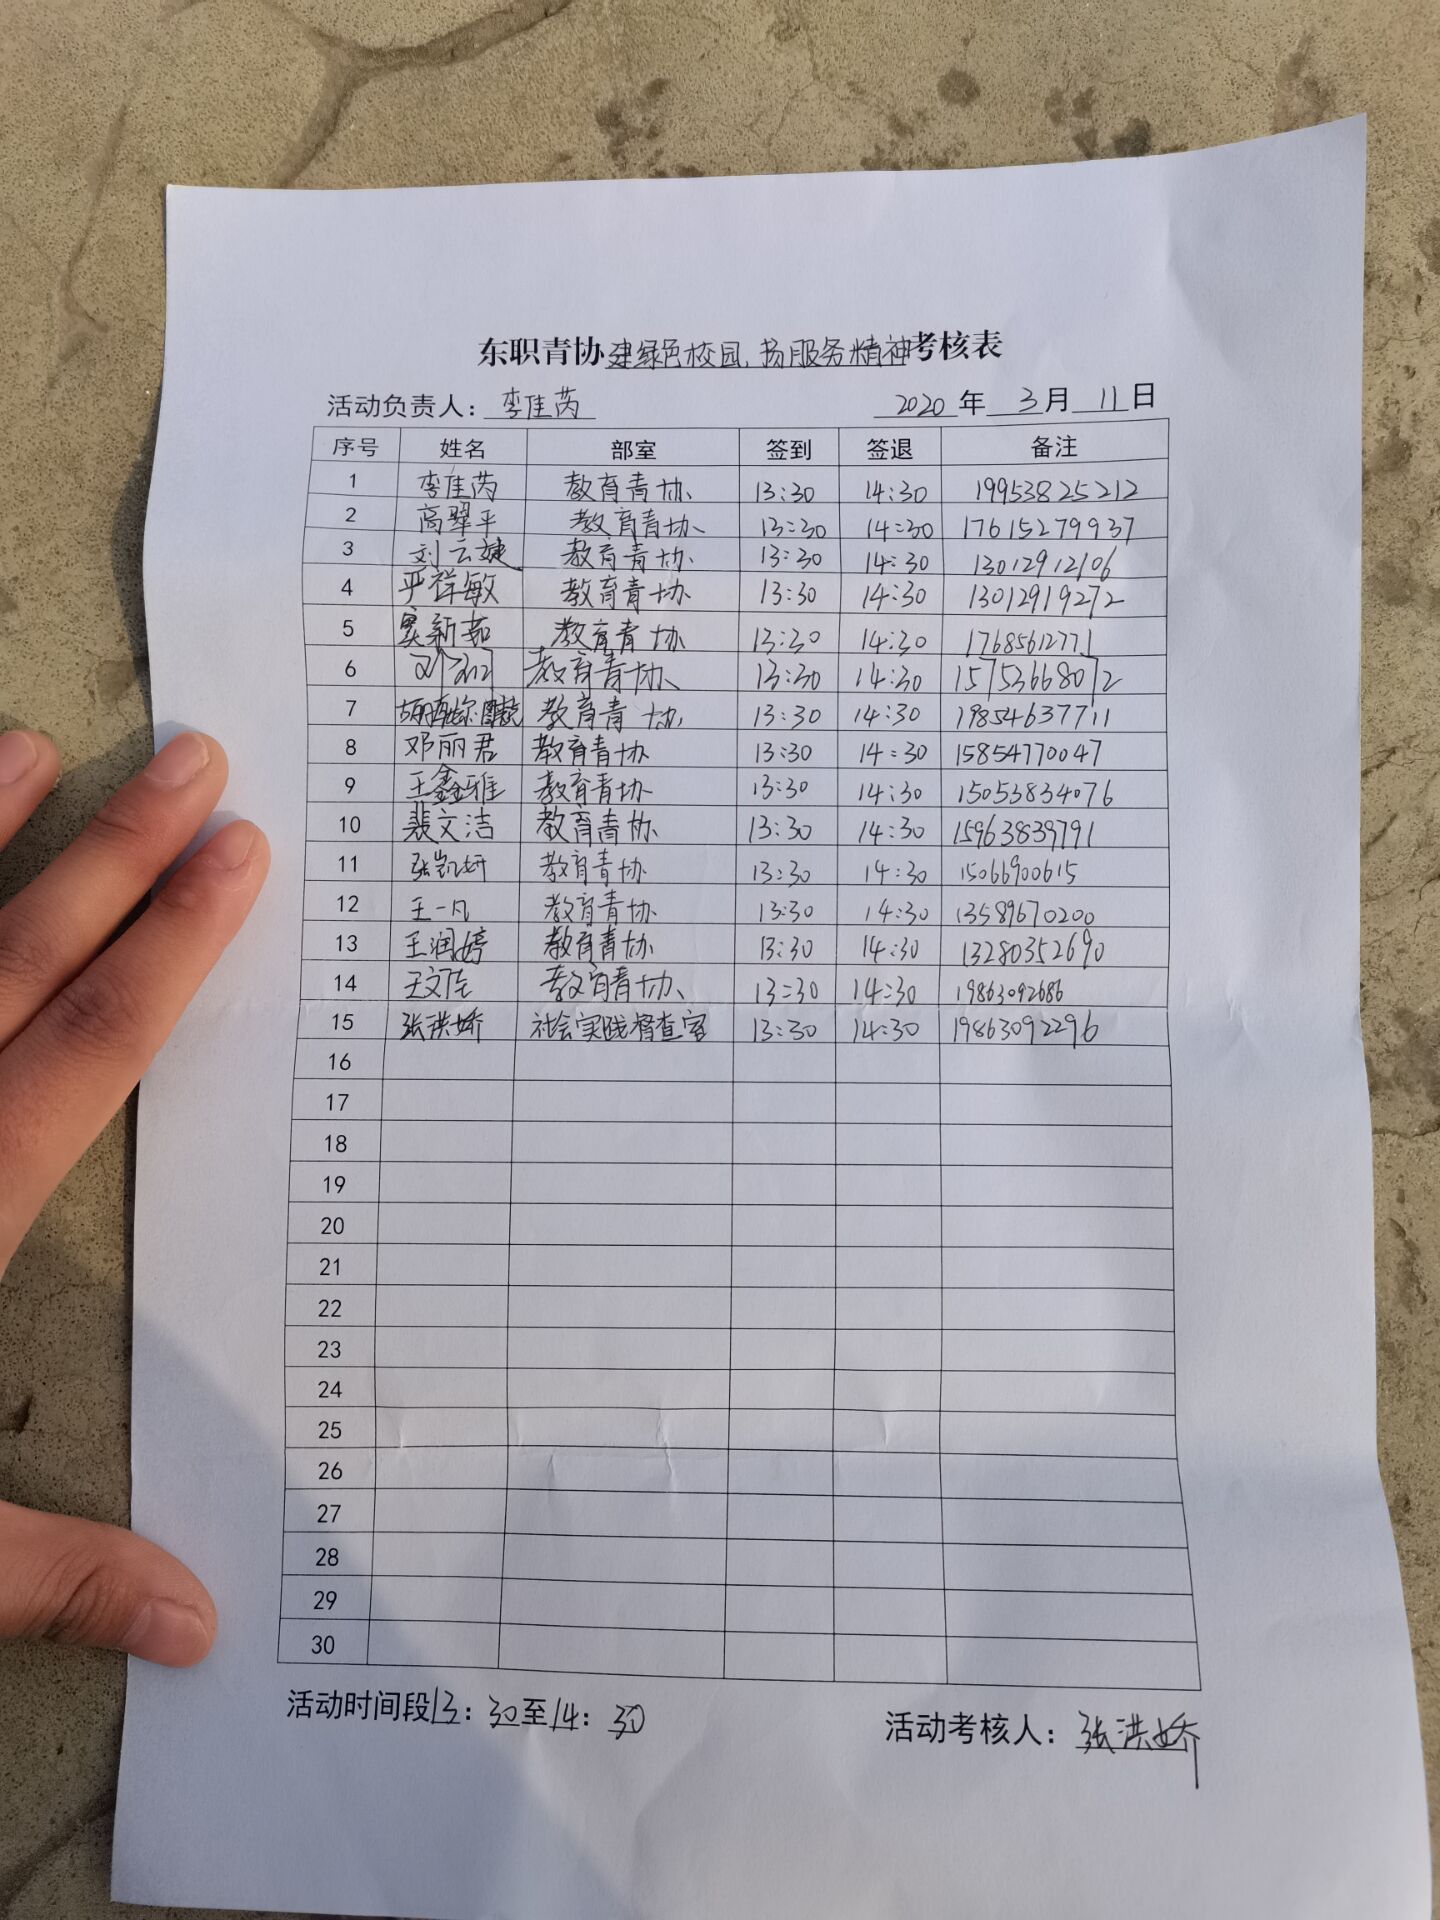 东职青协建绿色校园,扬服务精神考核表
活动负责人：李佳芮 2020年3月11日
序号 姓名 部室 签到 签退 备注
1 李佳芮 教育青协 13:30 14:30 19953825212
2 高翠平 教育青协 13:30 14:30 17615279937
3 刘云婕 教育青协 13:30 14:30 13012912106
4 严祥敏 教育青协 13:30 14:30 13012919272
5 窦新茹 教育青协 13:30 14:30 17685612771
6 教育青协 13:30 14:30 15753668072
7 教育青协 13:30 14:30 19854637711
8 邓丽君 教育青协 13:30 14:30 15854770047
9 王鑫雅 教育青协 13:30 14:30 15053834076
10 裴文洁 教育青协 13:30 14:30 15963839791
11 张凯妍 教育青协 13:30 14:30 15066900615
12 王一凡 教育青协 13:30 14:30 13589670200
13 王润婷 教育青协 13:30 14:30 13280352690
14 王文佳 教育青协 13:30 14:30 19863092686
15 张洪娇 社会实践督查室 13:30 14:30 19863092296
16
17
18
19
20
21
22
23
24
25
26
27
28
29
30
活动时间段13：30至14：30 活动考核人：张洪娇